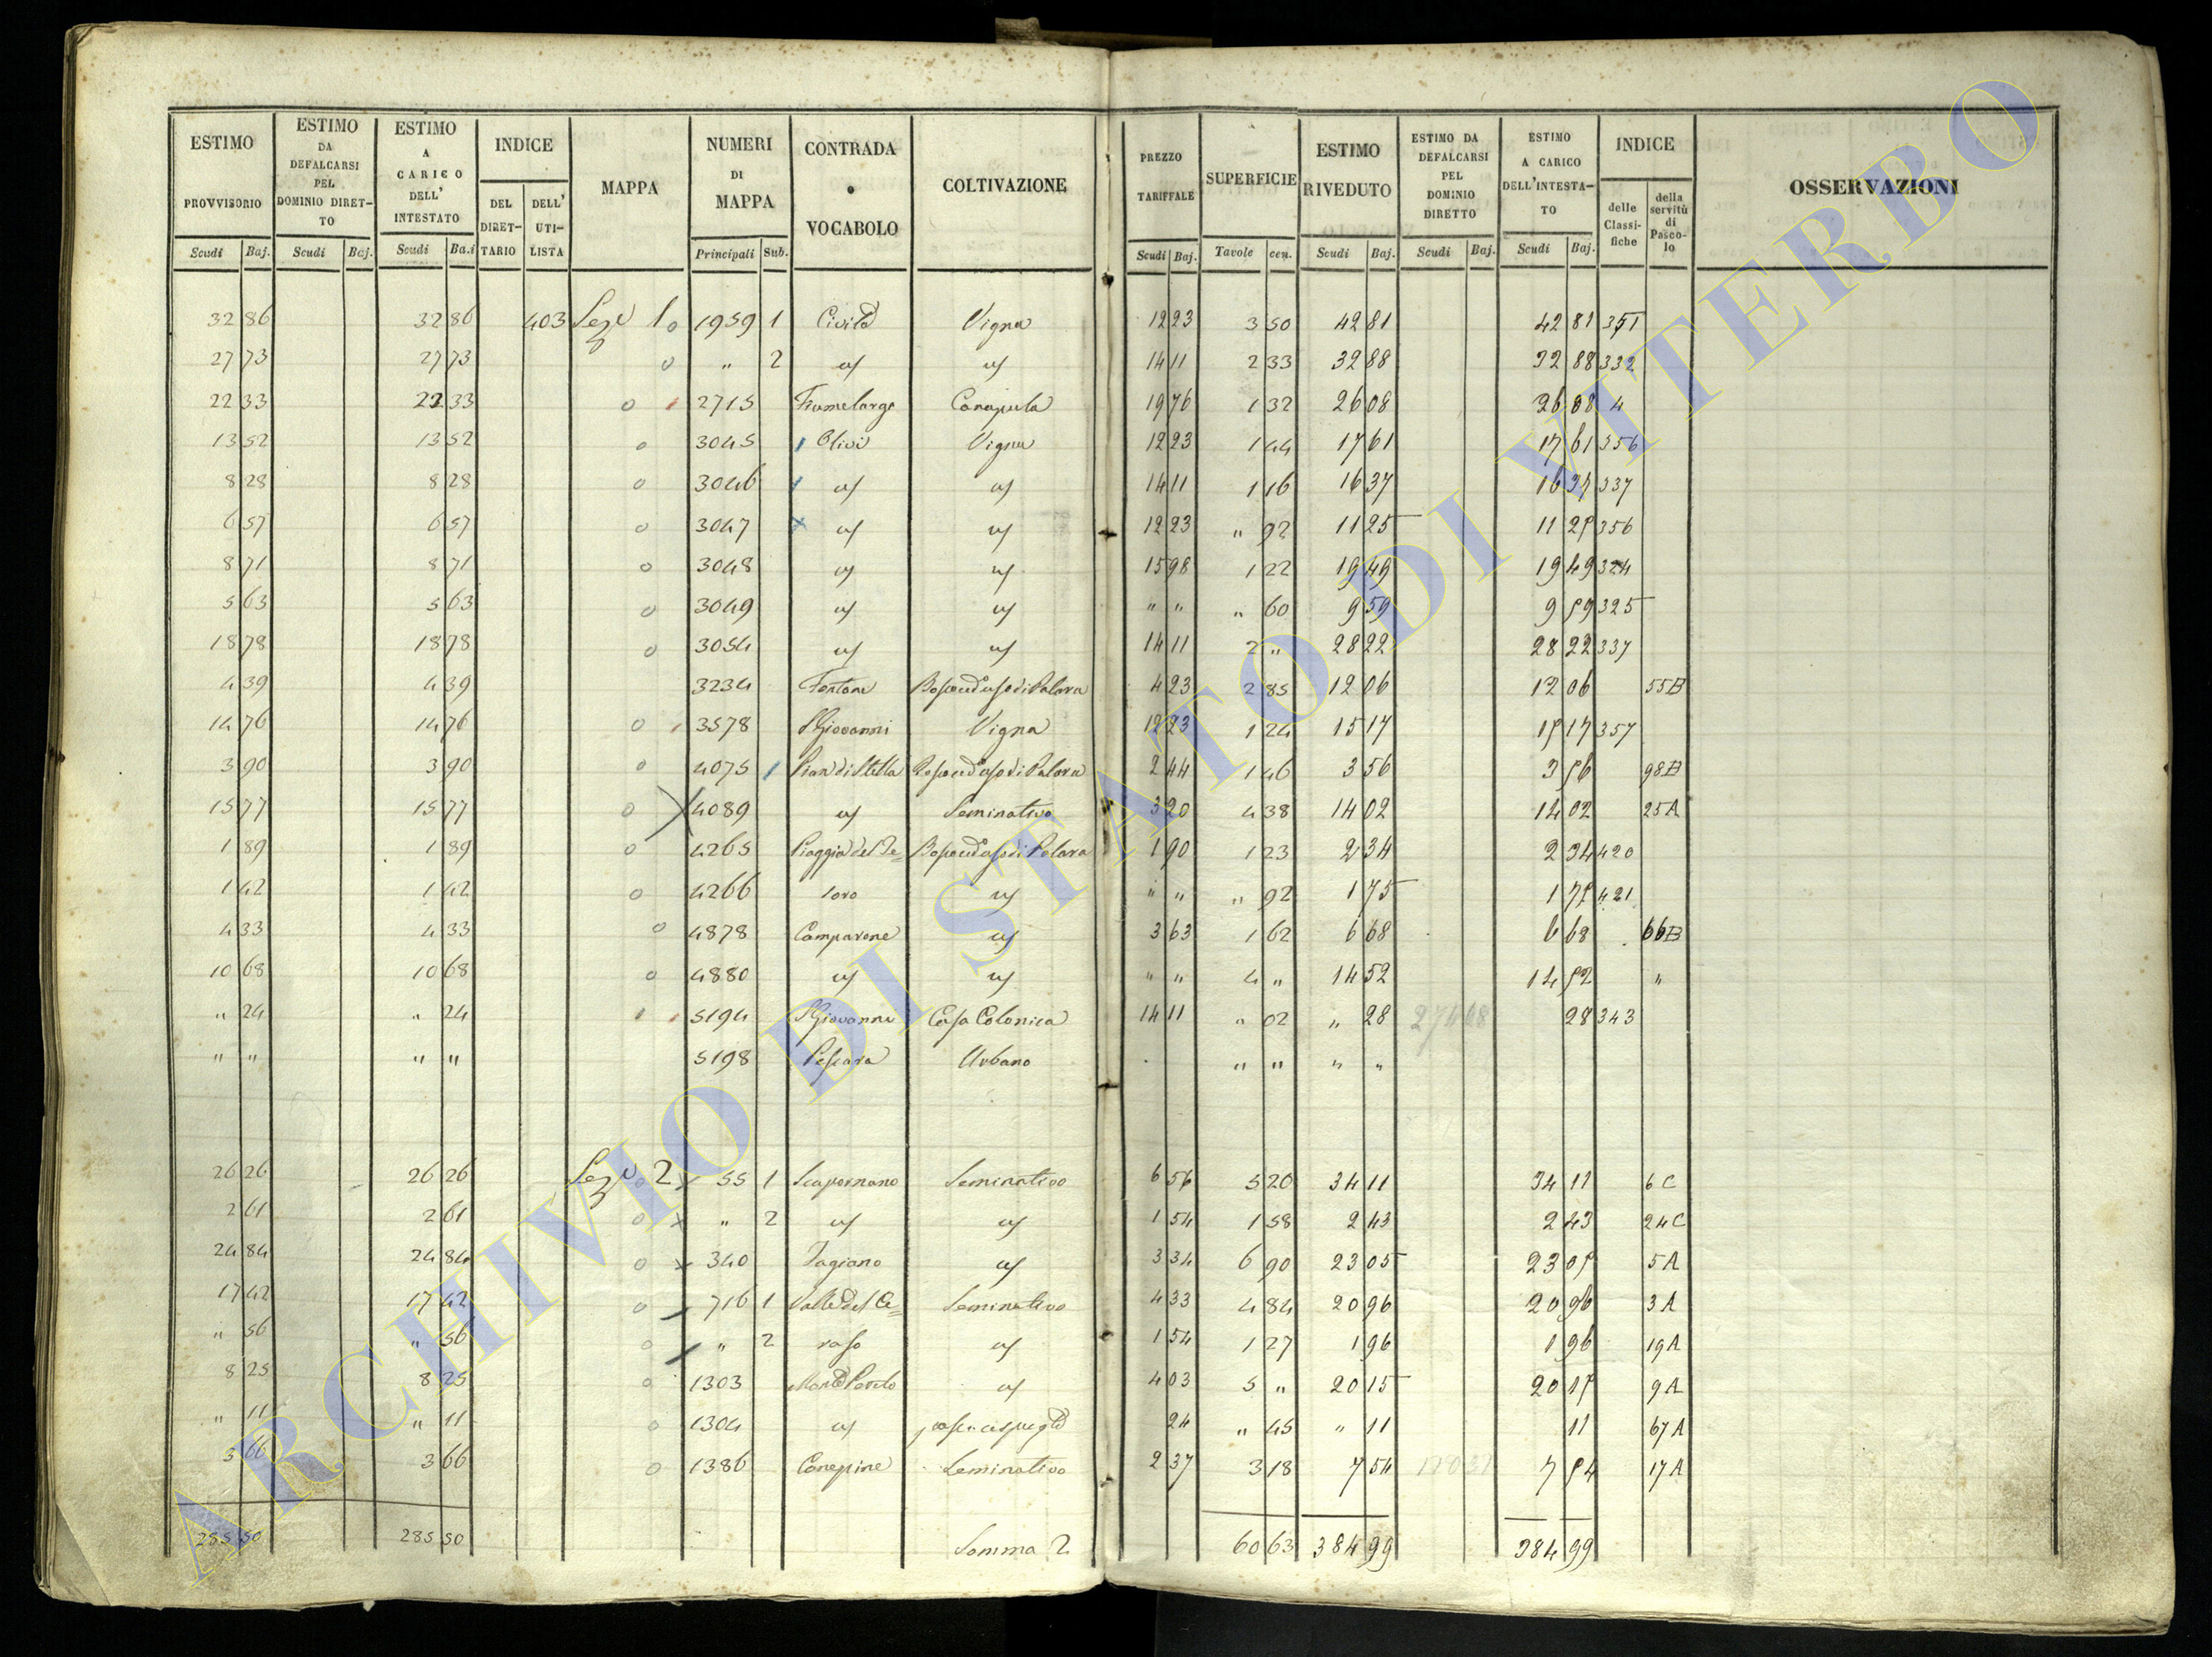 ESTIMO PROVVISORIO | ESTIMO DA DEFALCARSI PEL DOMINIO DIRET-TO | ESTIMO A CARICO DELL' INTESTATO | INDICE | MAPPA | NUMERI DI MAPPA | CONTRADA o VOCABOLO | COLTIVAZIONE | PREZZO TARIFFALE | SUPERFICIE | ESTIMO RIVEDUTO | ESTIMO DA DEFALCARSI PEL DOMINIO DIRETTO | ESTIMO A CARICO DELL'INTESTA-TO | INDICE | OSSERVAZIONI
DEL DIRET-TARIO | DELL' UTI-LISTA | delle Classi-fiche | della servitù di Pasco-lo
Scudi | Baj. | Scudi | Baj. | Scudi | Ba.i | Principali | Sub. | Scudi | Baj. | Tavole | cen. | Scudi | Baj. | Scudi | Baj. | Scudi | Baj.
32 86 | 32 86 | 403 | Seze 1 o | 1959 | 1 | Civita | Vigna | 12 23 | 3 50 | 42 81 | 42 81 | 351
27 73 | 27 73 | o | " | 2 | us | us | 14 11 | 2 33 | 32 88 | 32 88 | 332
22 33 | 22 33 | o | 2715 | Fiumelargo | Canapula | 19 76 | 1 32 | 26 08 | 26 08 | 4
13 52 | 13 52 | o | 3045 | Olivi | Vigna | 12 23 | 1 44 | 17 61 | 17 61 | 356
8 28 | 8 28 | o | 3046 | us | us | 14 11 | 1 16 | 16 37 | 16 37 | 337
6 57 | 6 57 | o | 3047 | us | us | 12 23 | " 92 | 11 25 | 11 25 | 356
8 71 | 8 71 | o | 3048 | us | us | 15 98 | 1 22 | 19 49 | 19 49 | 324
5 63 | 5 63 | o | 3049 | us | us | " " | " 60 | 9 59 | 9 59 | 325
18 78 | 18 78 | o | 3054 | us | us | 14 11 | 2 " | 28 22 | 28 22 | 337
4 39 | 4 39 | 3234 | Fontane | Bosco ed uso di Palara | 4 23 | 2 85 | 12 06 | 12 06 | 55B
14 76 | 14 76 | o | 3578 | S Giovanni | Vigna | 12 23 | 1 24 | 15 17 | 15 17 | 357
3 90 | 3 90 | o | 4075 | Pian di Stella | Bosco ed uso di Palara | 2 44 | 1 46 | 3 56 | 3 56 | 98B
15 77 | 15 77 | o | 4089 | us | Seminativo | 3 20 | 4 38 | 14 02 | 14 02 | 25A
1 89 | 1 89 | o | 4265 | Piaggia del Te= | Bosco ed uso di Palara | 1 90 | 1 23 | 2 34 | 2 34 | 420
1 42 | 1 42 | o | 4266 | soro | us | " " | " 92 | 1 75 | 1 75 | 421
4 33 | 4 33 | o | 4878 | Campavone | us | 3 63 | 1 62 | 6 68 | 6 68 | 66B
10 68 | 10 68 | o | 4880 | us | us | " " | 4 " | 14 52 | 14 52 | "
" 24 | " 24 | 5194 | S Giovanni | Casa Colonica | 14 11 | " 02 | " 28 | 28 | 343
" " | " " | 5198 | Pescara | Urbano | " " | " "
26 26 | 26 26 | Seze 2 | 55 | 1 | Scapornano | Seminativo | 6 56 | 5 20 | 34 11 | 34 11 | 6 C
2 61 | 2 61 | o | " | 2 | us | us | 1 54 | 1 58 | 2 43 | 2 43 | 24 C
24 84 | 24 84 | o | 340 | Fagiano | us | 3 34 | 6 90 | 23 05 | 23 05 | 5 A
17 42 | 17 42 | o | 716 | 1 | Valle del Ce= | Seminativo | 4 33 | 4 84 | 20 96 | 20 96 | 3 A
" 56 | " 56 | o | " | 2 | raso | us | 1 54 | 1 27 | 1 96 | 1 96 | 19 A
8 25 | 8 25 | o | 1303 | us | 4 03 | 5 " | 20 15 | 20 15 | 9 A
" 11 | " 11 | o | 1304 | us | 24 | " 45 | " 11 | 11 | 67 A
3 66 | 3 66 | o | 1386 | Canepine | Seminativo | 2 37 | 3 18 | 7 54 | 7 54 | 17 A
285 50 | 285 50 | Somma 2 | 60 63 | 384 99 | 384 99
ARCHIVIO DI STATO DI VITERBO